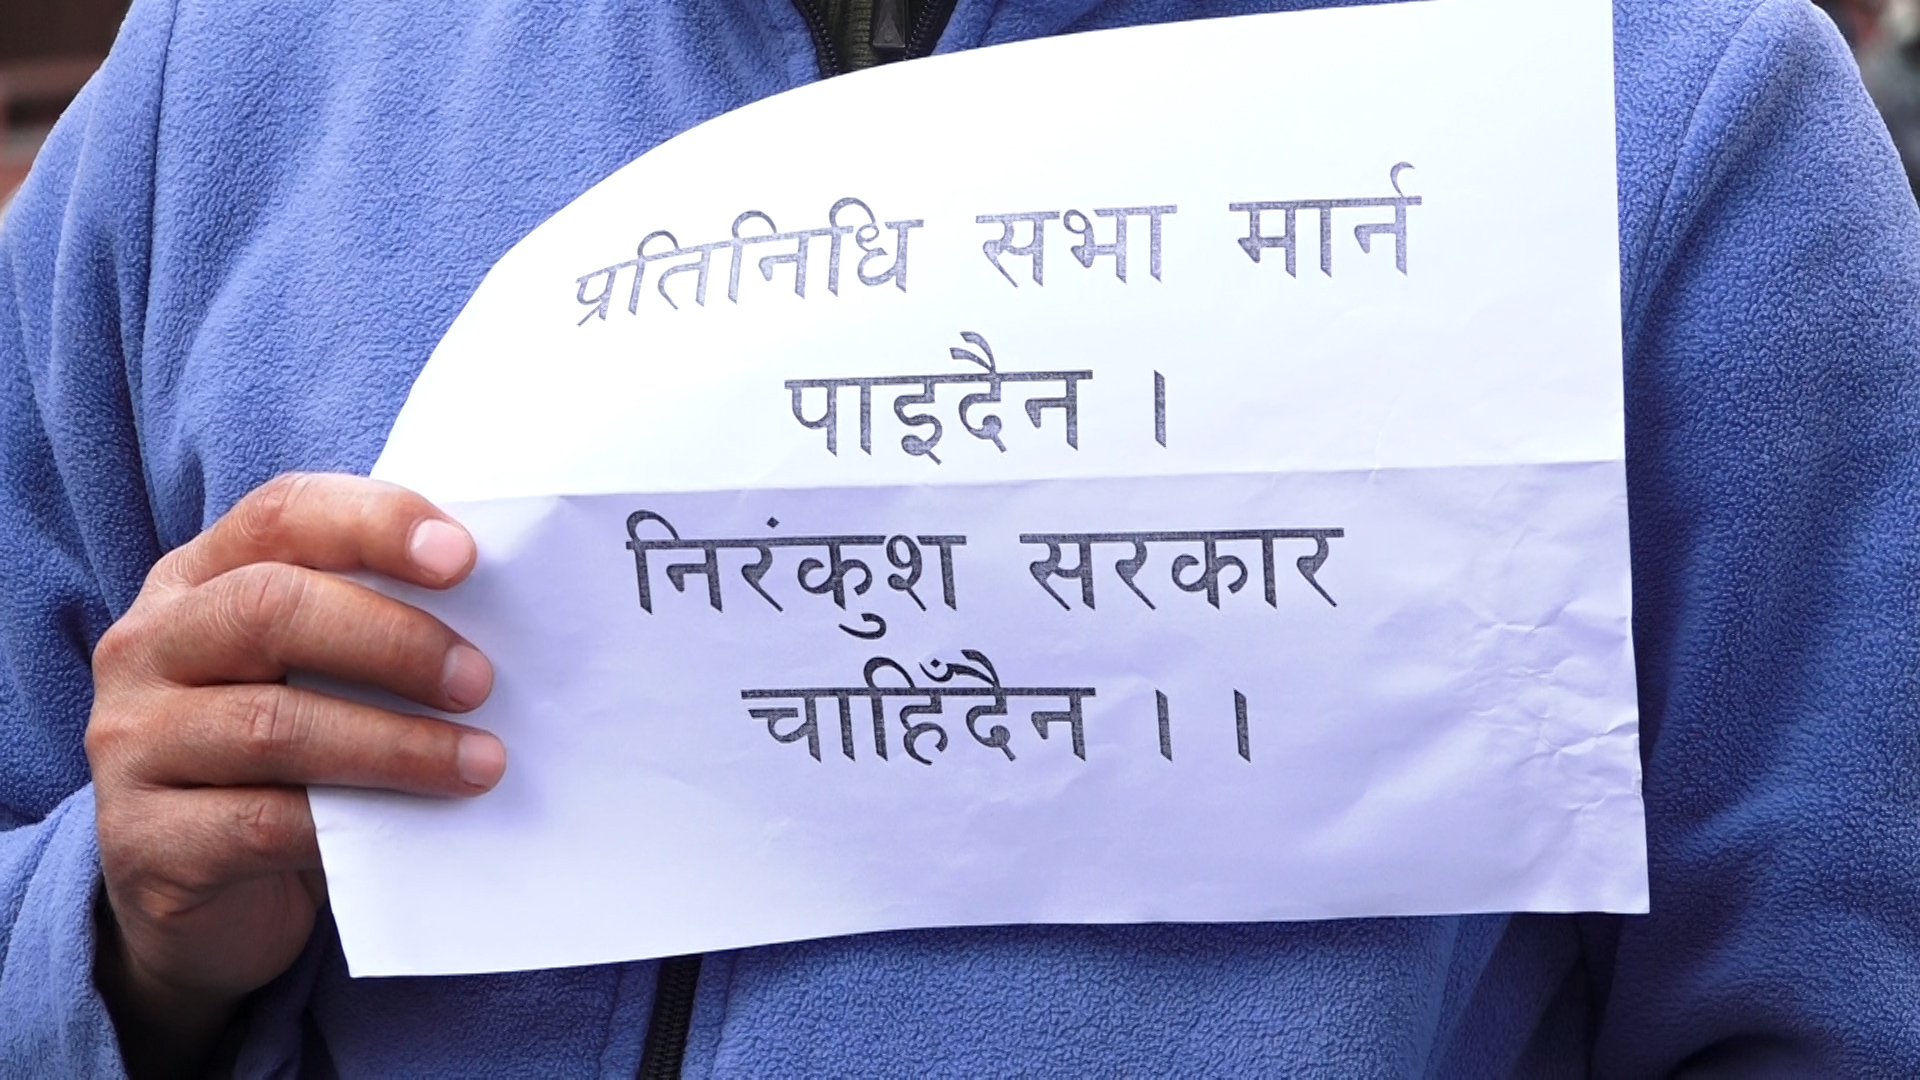 प्रतिनिधि सभा मार्न
पाइदैन ।
निरंकुश सरकार
चाहिँदैन । ।